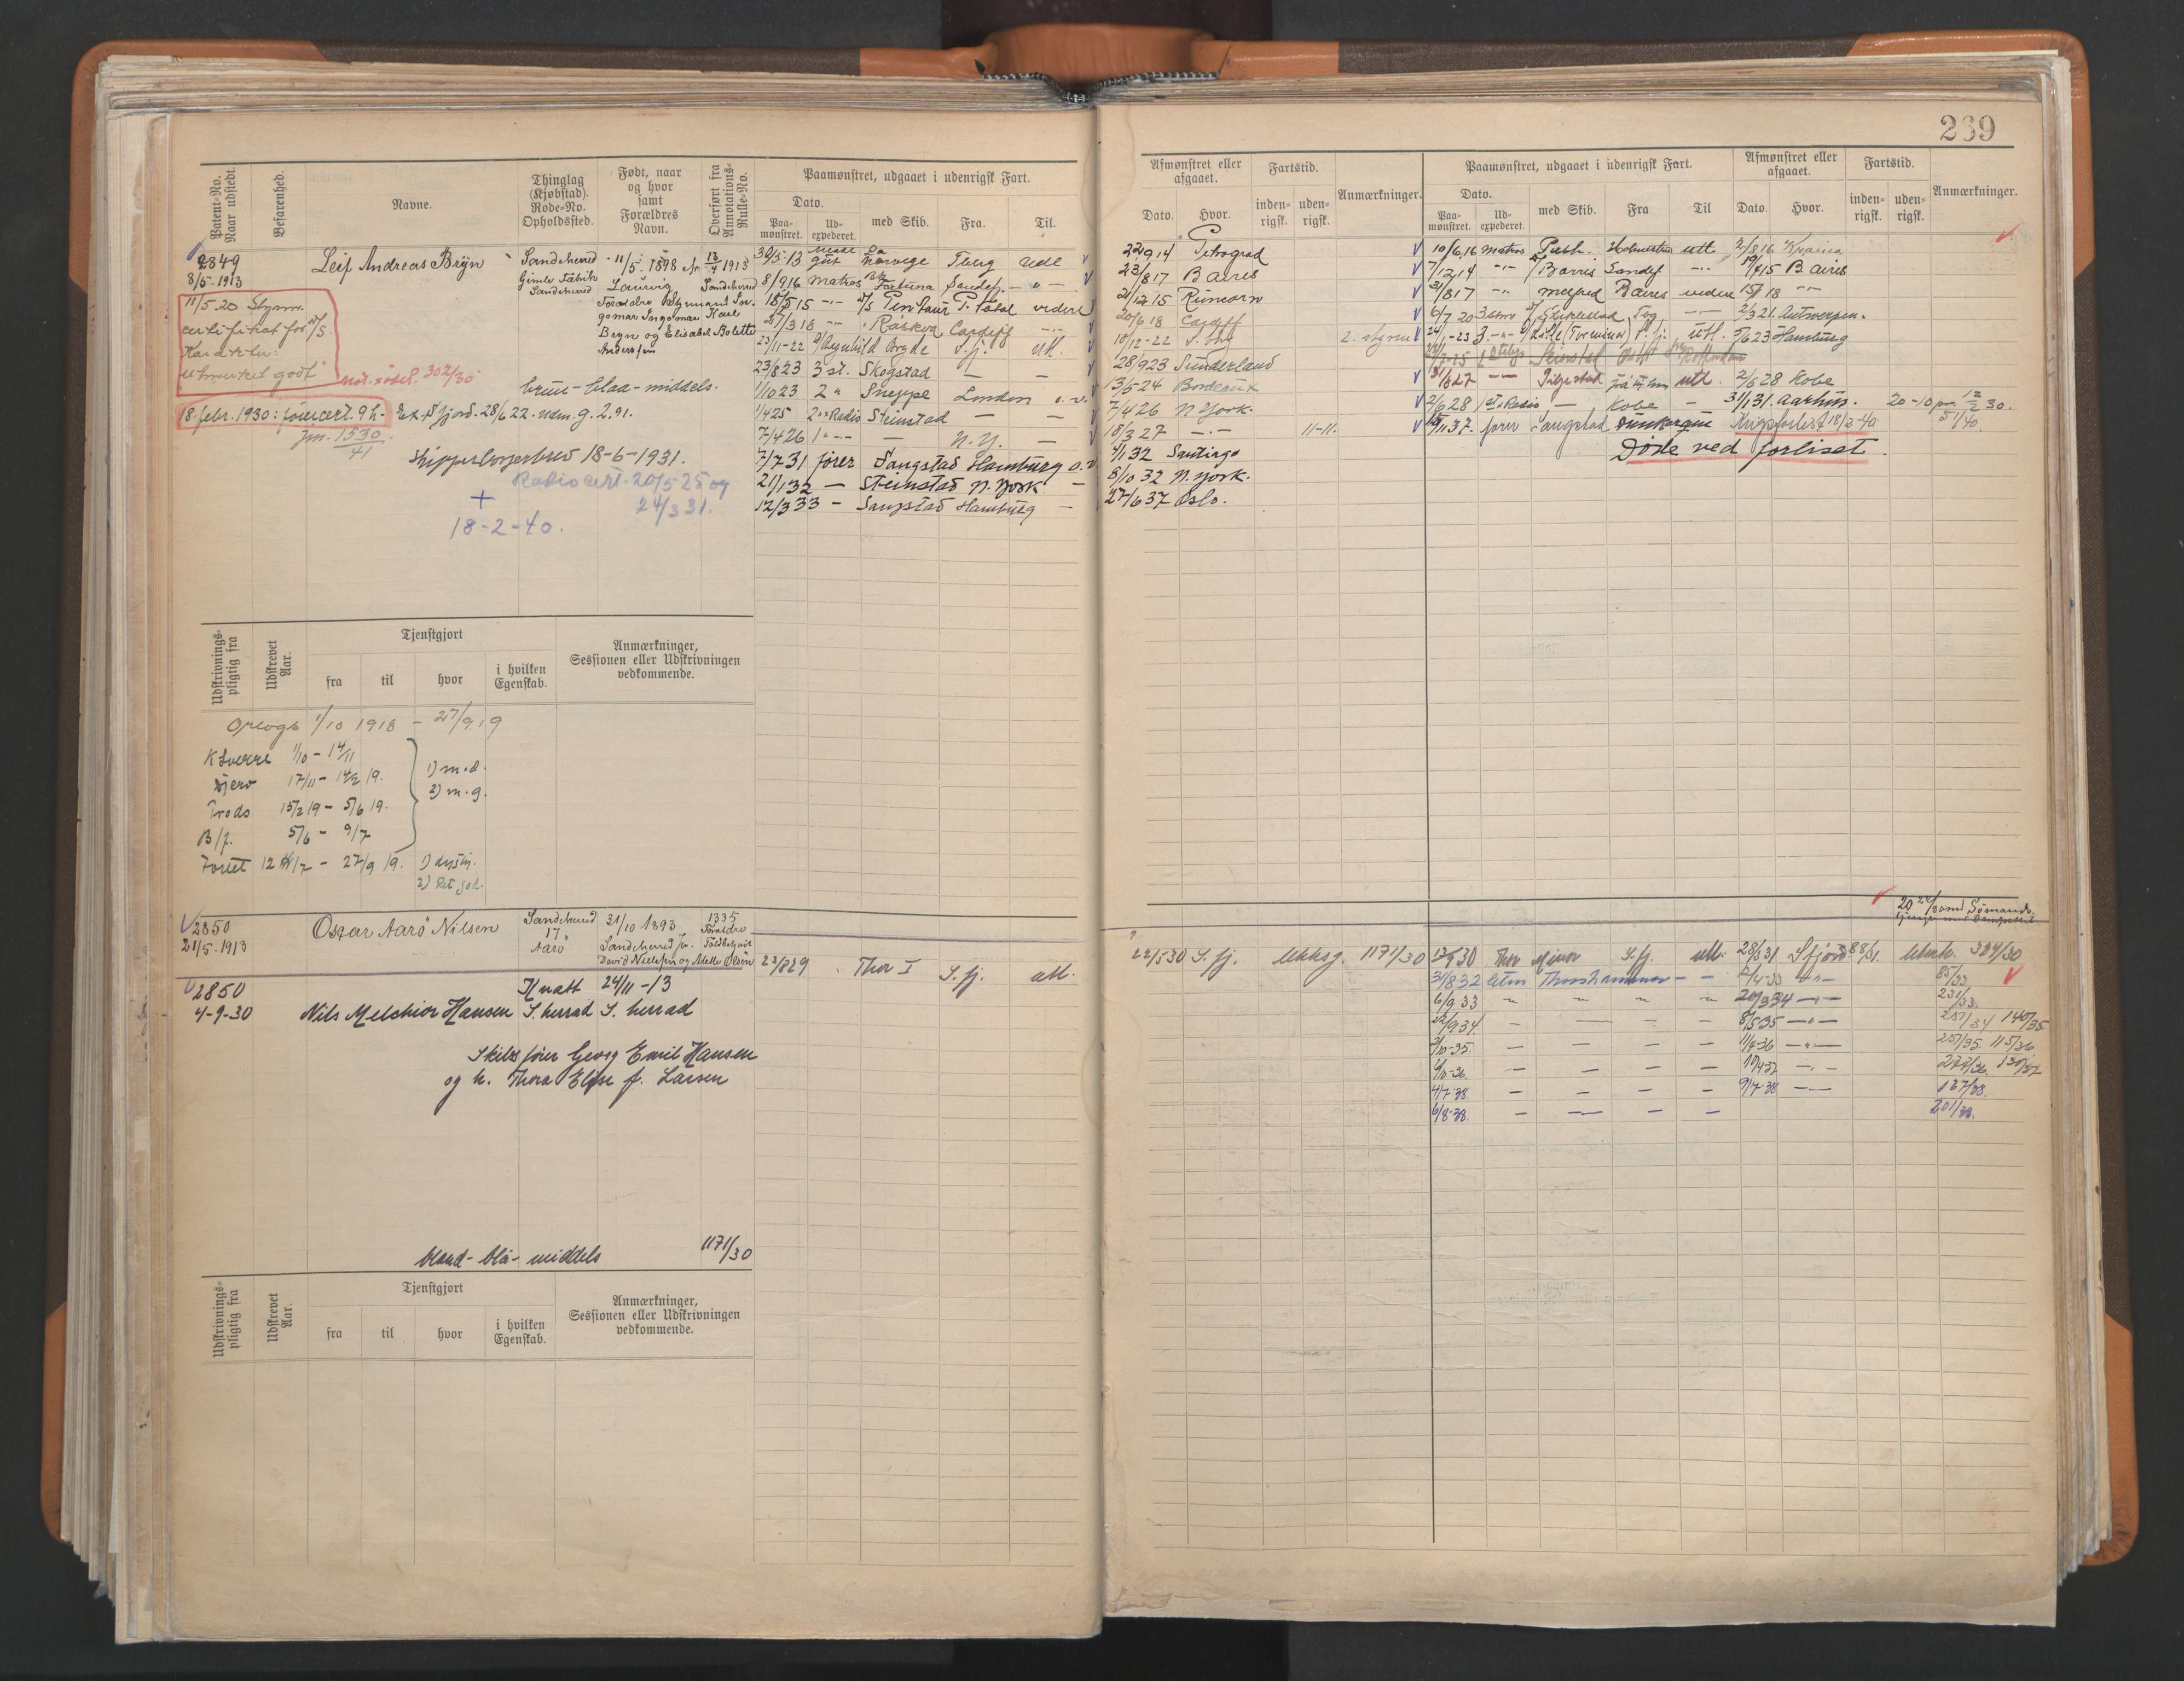 239
Patent-No. Naar udstedt.
Befarenhed.
Navne.
Thinglag (Kjøbstad). Rode-No. Opholdssted.
Født, naar og hvor samt Forældres Navn.
Overført fra Annotations-Rulle-No.
Paamønstret, udgaaet i udenrigsk Fart.
Dato.
Paa-mønstret.
Ud-expederet.
med Skib.
Fra.
Til.
Afmønstret eller afgaaet.
Dato.
Hvor.
Fartstid.
inden-rigsk.
uden-rigsk.
Anmærkninger.
Paamønstret, udgaaet i udenrigsk Fart.
Dato.
Paa-mønstret.
Ud-expederet.
med Skib.
Fra
Til
Afmønstret eller afgaaet.
Dato.
Hvor.
Fartstid.
inden-rigsk.
uden-rigsk.
Anmærkninger.
2849
8/5-1913
Leif Andreas Bryn
Sandeherred
Gimle Fabrik
Sandeherred
11/5 1898
Laurvig
Forældre
gomar Ingomar Karl
Bryn og Elisabet Bolette
Anderssen
1913
Sandeherred
11/5-20 Styrm.
certifikat for
Karakter:
utmerket godt
not. rødel. 302/30
18 febr. 1930: førercert. 9 h.
Jnr. 1530/41
brun-blaa-middels.
Ex. S.fjord. 28/6 22. ndm. g. 2.91.
Skipperborgerbrev 18-6-1931.
Radiocert. 20/5 25 og
24/3 31.
+
18-2-40.
30/5-13 gut Norvege Tberg Udl
8/9 16 Matros Fortuna Sandefj. - " -
18/5 15 -"- Pentaur P. Natal videre
27/3 18 -"- Raskva Cardiff -"-
23/11-22 Ragnhild Bryde S.fj. utl.
23/8 23 3 st. Skogstad — —
1/10 23 2 " Sneppe London o.v.
1/4 25 2 " Radio Steinstad — —
7/4 26 1 " — — N.Y. —
7/7 31 fører Sangstad Hamburg o.v
21/1 32 — Steinstad N. York —
12/3 33 — Sangstad Hamburg —
22/9 14 Petrograd
23/8 17 B aires
21/12 15 Rimorn
20/6 18 Cardiff
10/12-22 S. Sby
28/9 23 Sunderland
13/5-24 Bordeaux
7/4 26 N York.
18/3 27 —"— 11-11.
4/1 32 Santiago
8/10 32 N. York.
27/6 37 Oslo.
2. styrm
10/6 16 matros Push. Holmestrand utl 2/8 16
7/12 14 -"- Barris Sandef -"- 19/4 15 B. aires
31/8 17 -"- Melfred B aires videre 15/7 18 -"-
6/7 20 3 strm Stiklestad Tbg -"- 2/3 21. Antwerpen.
24/1-23 3. -"- Lille (Torminer) S.fj. utl. 5/6 23 Hamburg
31/8 27 -"- utl. 2/6 28 Kobe
2/6 28 1st. Radio — Kobe — 31/1 31. Aarhus. 20-10 pr. 12/2 30.
15/11 37. fører Sangstad Dunkerque Krigsforlist 18/2-40 51/40.
Døde ved forliset.
Udskrivnings-pligtig fra
Udskrevet Aar.
Tjenstgjort
fra
til
hvor
i hvilken Egenskab.
Anmærkninger, Sessionen eller Udskrivningen vedkommende.
Orlogs 1/10 1918 - 27/9 19
K Sverre 1/10 - 14/11
Djerv 17/11 - 14/2 19.
Trods 15/2 19 - 5/6 19.
B/f. 5/6 - 9/7
Fortet 12/7 - 27/9 19.
1) m.d.
2) m.g.
1) dygtig.
2) Ret god.
2850
21/5-1913
Oscar Aarö Nilsen
Sandeherred
17
Aarö
31/10 1893
Sandeherred
David Nielssen og Mette Olsen
1335
Forældre
2850
4-9-30
Nils Melchior Hansen
Kvatt
S. herrad
24/11-13
S. herrad
Skibsfører Georg Emil Hansen
og h. Thora Elise f. Larsen
blond-blå-middels
1171/30
23/8 29 Thor I S.fj. utl.
22/5 30 S.fj. Ukksg. 1171/30
12/9 30 Thor Minor S.fj. utl. 28/5 31. S fjord 88/31. 324/30
31/8 32 Thorshammer — — 2/4-33 -"- 85/33
6/9 33 — — — — 20/3 34 -"- 231/33
22/9 34 — — — — 8/5 35 -"- 257/34 140/35
2/10-35. — — — — 11/4-36 -"- 257/35. 115/36
2/10-36. — — — — 10/4 37 -"- 277/36. 130/37
4/7-38 — — — — 9/7-38 -"- 187/38.
6/8-38. — — — — 201/38.
Udskrivnings-pligtig fra
Udskrevet Aar.
Tjenstgjort
fra
til
hvor
i hvilken Egenskab.
Anmærkninger, Sessionen eller Udskrivningen vedkommende.